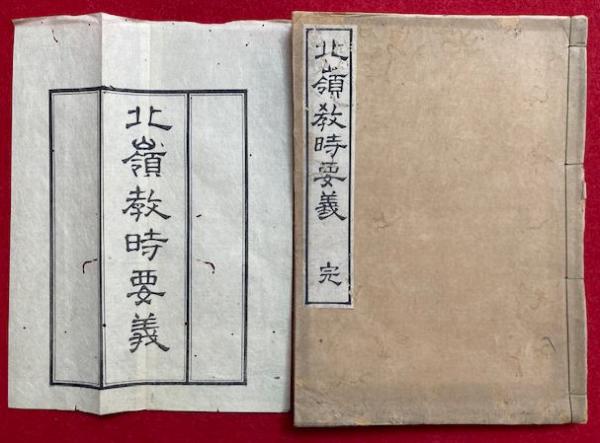 北嶺教時要義
北嶺教時要義 完